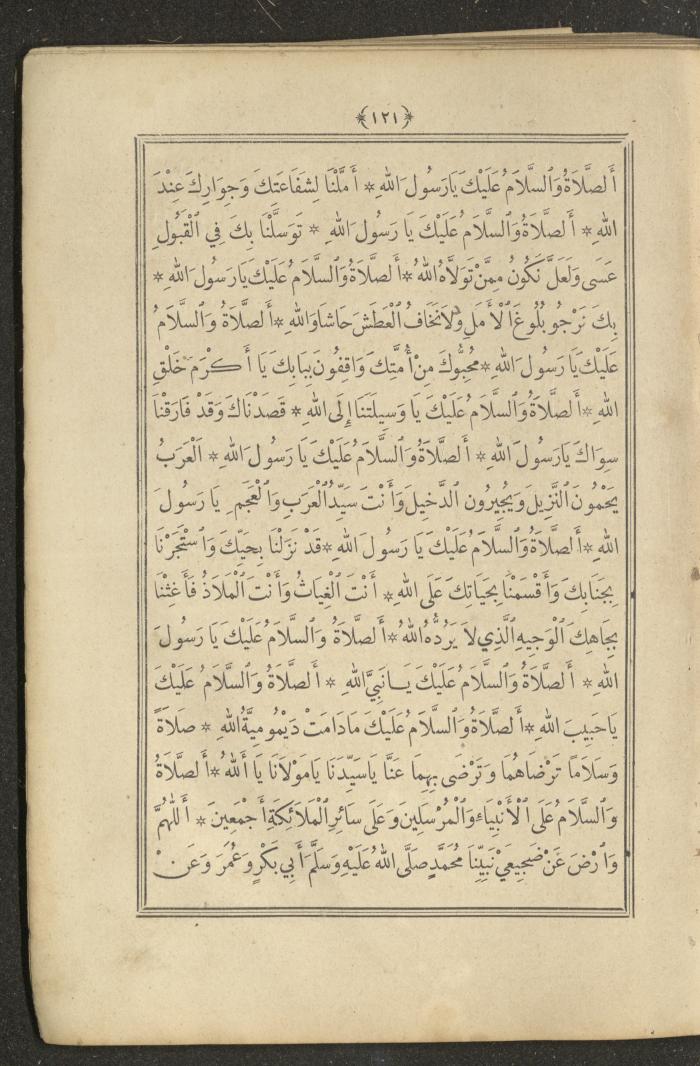 ﴿١٢١﴾
أَلصَّلَاةُ وَالسَّلَامُ عَلَيْكَ يَا رَسُولَ اللهِ * أَمَّلْنَا لِشَفَاعَتِكَ وَجِوَارِكَ عِنْدَ
اللهِ * أَلصَّلَاةُ وَالسَّلَامُ عَلَيْكَ يَا رَسُولَ اللهِ * تَوَسَّلْنَا بِكَ فِي الْقَبُولِ
عَسَى وَلَعَلَّ نَكُونُ مِمَّنْ تَوَلَّاهُ اللهُ * أَلصَّلَاةُ وَالسَّلَامُ عَلَيْكَ يَا رَسُولَ اللهِ *
بِكَ نَرْجُو بُلُوغَ الْأَمَلِ وَلَا نَخَافُ الْعَطَشَ حَاشَا وَاللهِ * أَلصَّلَاةُ وَالسَّلَامُ
عَلَيْكَ يَا رَسُولَ اللهِ * مُحِبُّوكَ مِنْ أُمَّتِكَ وَاقِفُونَ بِبَابِكَ يَا أَكْرَمَ خَلْقِ
اللهِ * أَلصَّلَاةُ وَالسَّلَامُ عَلَيْكَ يَا وَسِيلَتَنَا إِلَى اللهِ * قَصَدْنَاكَ وَقَدْ فَارَقْنَا
سِوَاكَ يَا رَسُولَ اللهِ * أَلصَّلَاةُ وَالسَّلَامُ عَلَيْكَ يَا رَسُولَ اللهِ * اَلْعَرَبُ
يَحْمُونَ النَّزِيلَ وَيُجِيرُونَ الدَّخِيلَ وَأَنْتَ سَيِّدُ الْعَرَبِ وَالْعَجَمِ يَا رَسُولَ
اللهِ * أَلصَّلَاةُ وَالسَّلَامُ عَلَيْكَ يَا رَسُولَ اللهِ * قَدْ نَزَلْنَا بِحَيِّكَ وَاسْتَجَرْنَا
بِجَنَابِكَ وَأَقْسَمْنَا بِحَيَاتِكَ عَلَى اللهِ * أَنْتَ الْغِيَاثُ وَأَنْتَ الْمَلَاذُ فَأَغِثْنَا
بِجَاهِكَ الْوَجِيهِ الَّذِي لَا يَرُدُّهُ اللهُ * أَلصَّلَاةُ وَالسَّلَامُ عَلَيْكَ يَا رَسُولَ
اللهِ * أَلصَّلَاةُ وَالسَّلَامُ عَلَيْكَ يَا نَبِيَّ اللهِ * أَلصَّلَاةُ وَالسَّلَامُ عَلَيْكَ
يَا حَبِيبَ اللهِ * أَلصَّلَاةُ وَالسَّلَامُ عَلَيْكَ مَا دَامَتْ دَيْمُومِيَّةُ اللهِ * صَلَاةً
وَسَلَامًا تَرْضَاهُمَا وَتَرْضَى بِهِمَا عَنَّا يَا سَيِّدَنَا يَا مَوْلَانَا يَا أَللهُ * أَلصَّلَاةُ
وَالسَّلَامُ عَلَى الْأَنْبِيَاءِ وَالْمُرْسَلِينَ وَعَلَى سَائِرِ الْمَلَائِكَةِ أَجْمَعِينَ * أَللّٰهُمَّ
وَارْضَ عَنْ ضَجِيعَيْ نَبِيِّنَا مُحَمَّدٍ صَلَّى اللهُ عَلَيْهِ وَسَلَّمَ أَبِي بَكْرٍ وَعُمَرَ وَعَنْ